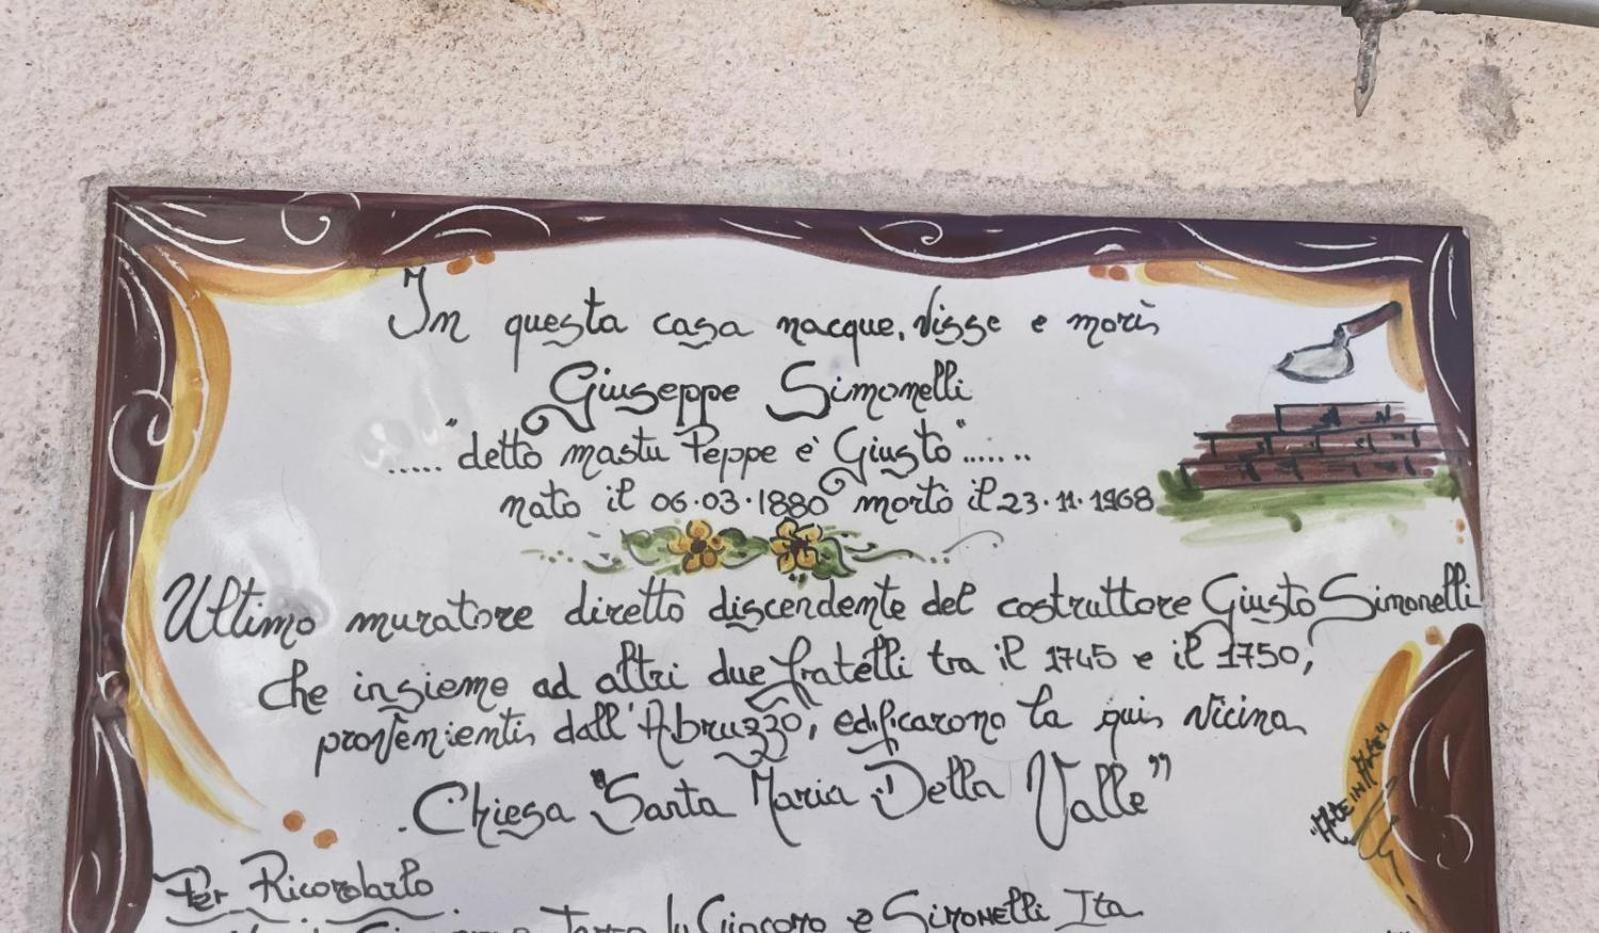 In questa casa nacque, visse e morì
Giuseppe Simonelli
..... "detto mastu Peppe e' Giusto"......
nato il 06.03.1880 morto il 23.11.1968
Ultimo muratore diretto discendente del costruttore Giusto Simonelli
che insieme ad altri due fratelli tra il 1745 e il 1750,
provenienti dall'Abruzzo, edificarono la qui vicina
Chiesa "Santa Maria Della Valle"
Per Ricordarlo
Giacomo e Simonelli Ita